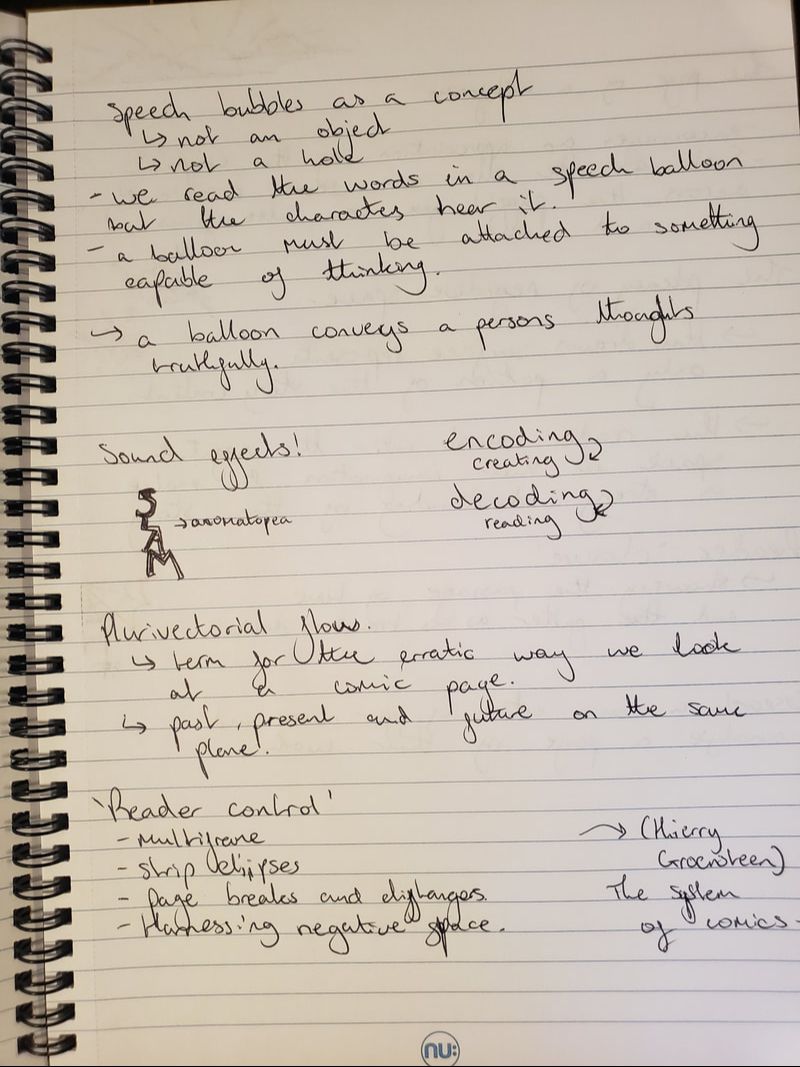 Speech bubbles as a concept
↳ not an object
↳ not a hole
- we read the words in a speech balloon
but the characters hear it.
- a balloon must be attached to something
capable of thinking.
→ a balloon conveys a persons thoughts
truthfully.
Sound effects!
encoding
creating
SLAM
→ anomatopea
decoding
reading
Plurivectorial flows.
↳ term for the erratic way we look
at a comic page.
↳ past, present and future on the same
plane.
'Reader control'
- Multiframe
- strip ellipses
- page breaks and clifhangers.
- Harnessing negative space.
→ (Thierry
Groensteen)
The system
of comics.
nu: